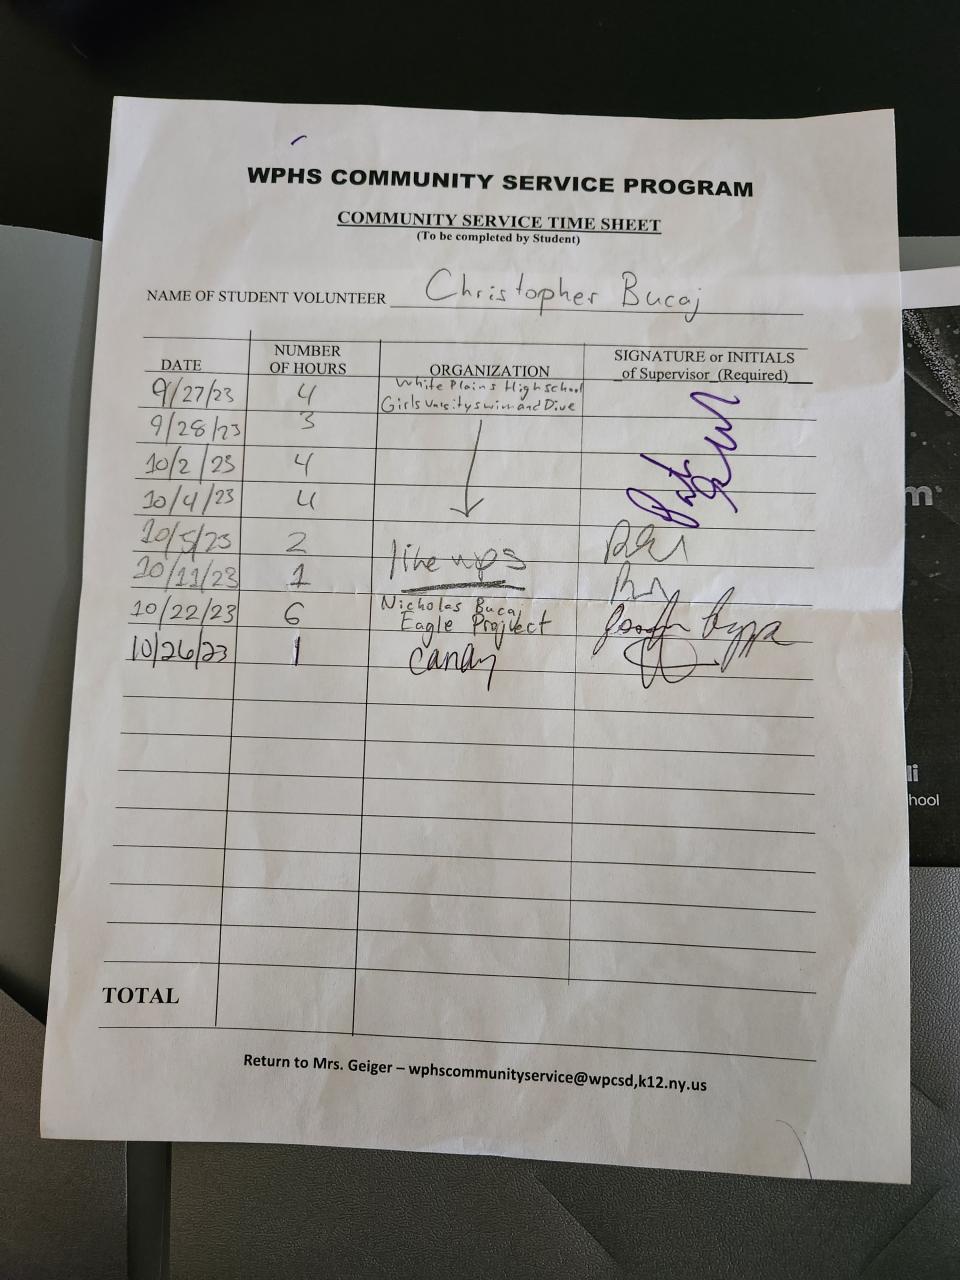 WPHS COMMUNITY SERVICE PROGRAM
COMMUNITY SERVICE TIME SHEET
(To be completed by Student)
NAME OF STUDENT VOLUNTEER Christopher Bucaj
DATE NUMBER OF HOURS ORGANIZATION SIGNATURE or INITIALS of Supervisor (Required)
9/27/23 4 White Plains Highschool
Girls Varsity swim and Dive
9/28/23 3
10/2/23 4
10/4/23 4
10/5/23 2 line ups
10/11/23 1
10/22/23 6 Nicholas Bucaj
Eagle Project
10/26/23 1 candy
TOTAL
Return to Mrs. Geiger – wphscommunityservice@wpcsd,k12.ny.us
m
li
hool